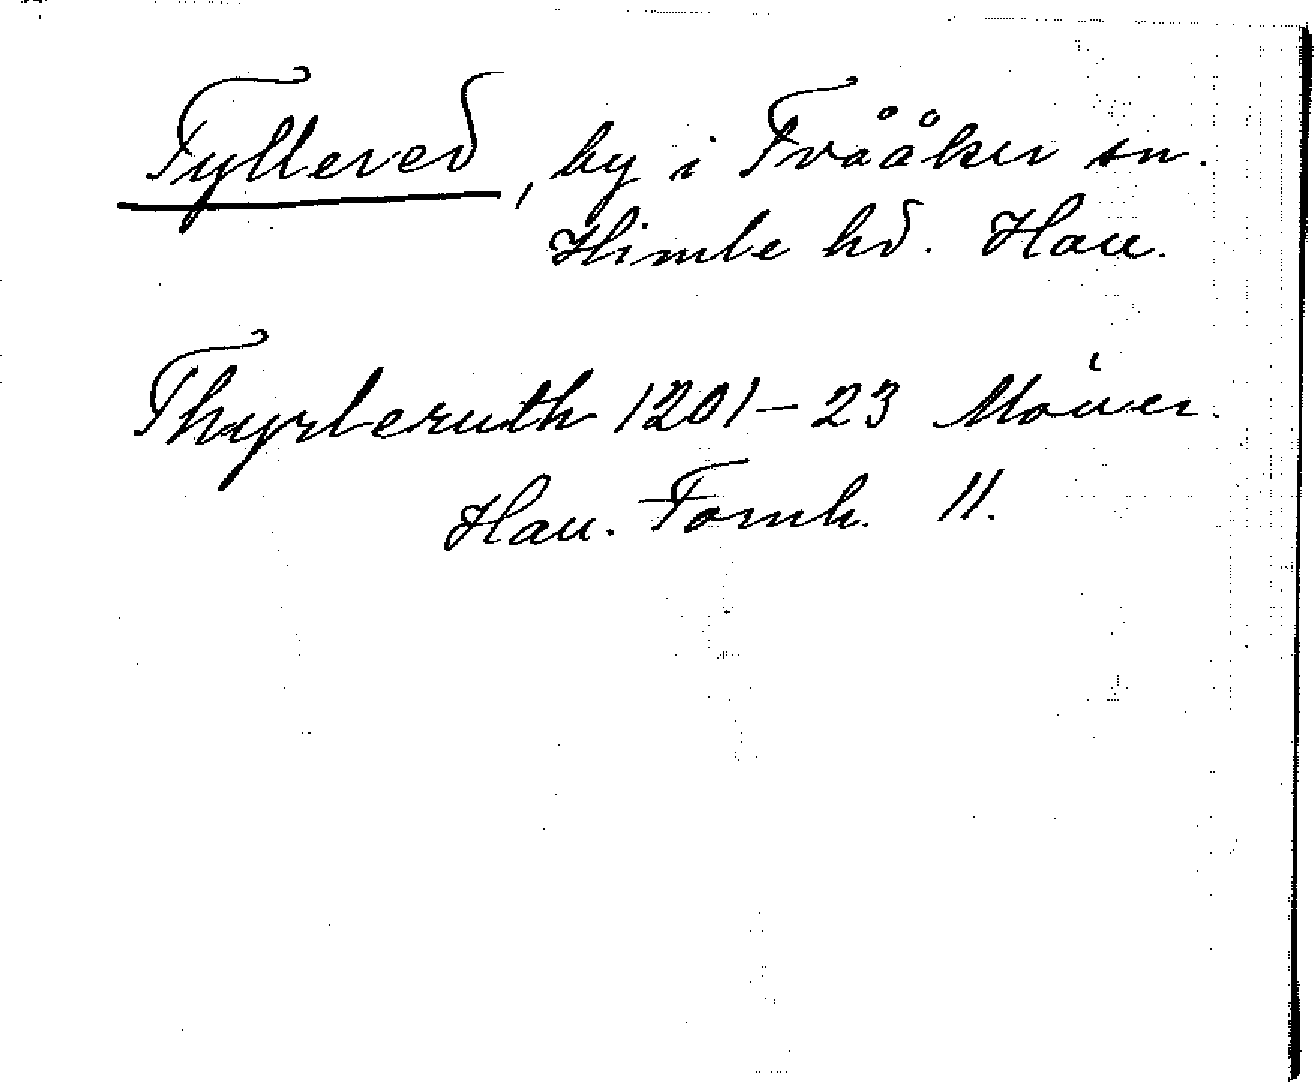 Tyllered, by i Tvååker sn.
Himle hd. Hall.
Thyrleruth 1201–23
Hall. Fornh. II.